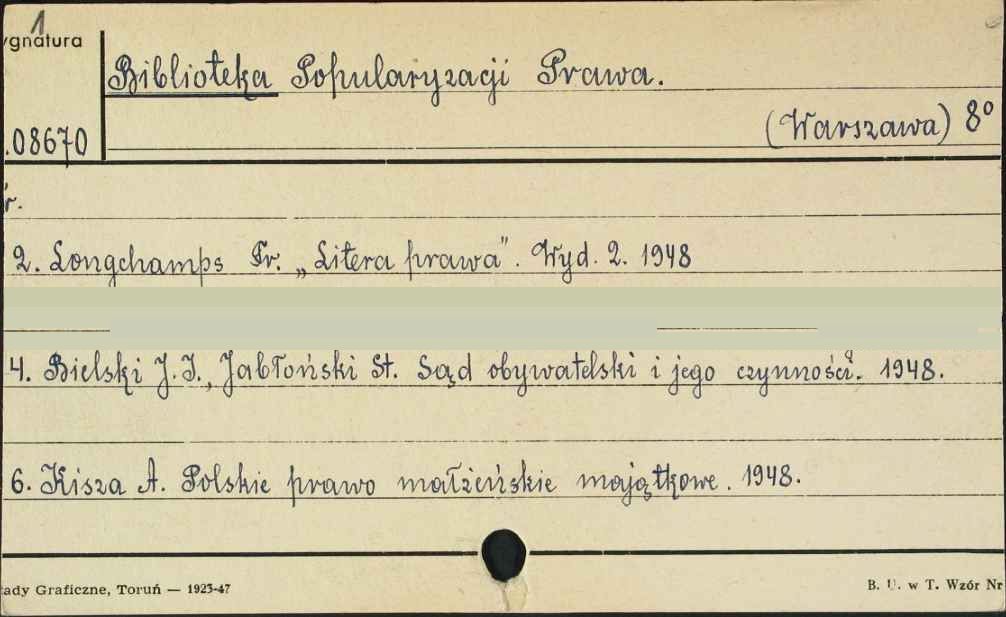 1
ygnatura
Biblioteka Popularyzacji Prawa.
(Warszawa) 8°
.08670
r.
2. Longchamps Fr. „Litera prawa". Wyd. 2. 1948
4. Bielski J.I., Jabłoński St. Sąd obywatelski i jego czynności. 1948.
6. Kisza A. Polskie prawo małżeńskie majątkowe. 1948.
ady Graficzne, Toruń — 1923-47
B. U. w T. Wzór Nr